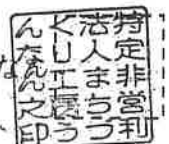 特定非営利
法人まちづ
くり工房う
んなん之印
な